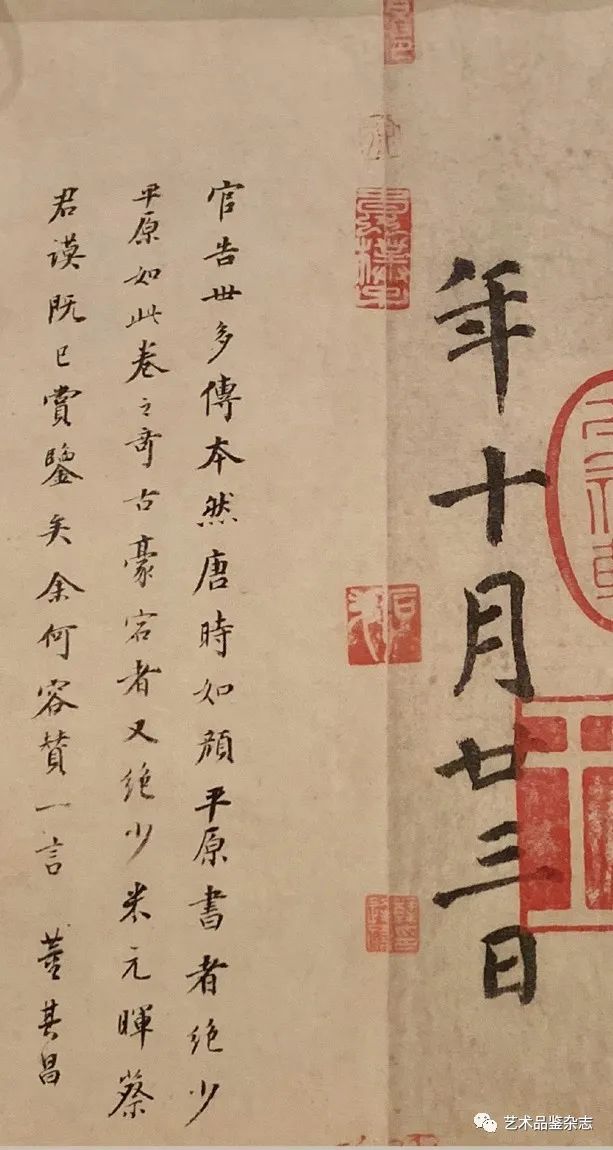 年十月廿三日
官告世多傳本然唐時如顔平原書者絶少
平原如此卷之奇古豪宕者又絶少米元暉蔡
君謨既已賞鑒矣余何容贊一言 董其昌
艺术品鉴杂志